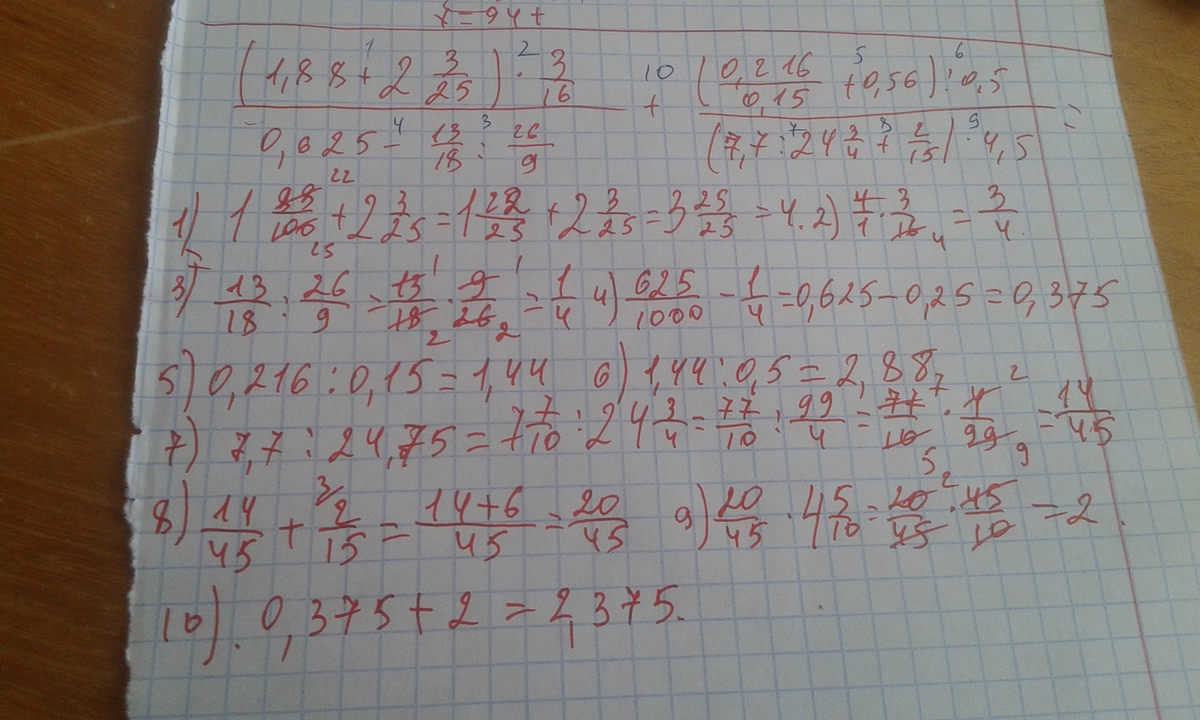 x = 94 +
(1,88 + 2 3/25) · 3/16 + (0,216/0,15 + 0,56) : 0,5 =
0,625 - 13/18 : 26/9 (7,7 : 24 3/4 + 2/15) · 4,5
1) 1 88/100 + 2 3/25 = 1 22/25 + 2 3/25 = 3 25/25 = 4. 2) 4/1 · 3/16 = 3/4.
3) 13/18 : 26/9 = 13/18 · 9/26 = 1/4 4) 625/1000 - 1/4 = 0,625 - 0,25 = 0,375
5) 0,216 : 0,15 = 1,44 6) 1,44 : 0,5 = 2,88
7) 7,7 : 24,75 = 7 7/10 : 24 3/4 = 77/10 : 99/4 = 77/10 · 4/99 = 14/45
8) 14/45 + 2/15 = 14+6/45 = 20/45 9) 20/45 · 4 5/10 = 20/45 · 45/10 = 2.
10). 0,375 + 2 = 2,375.